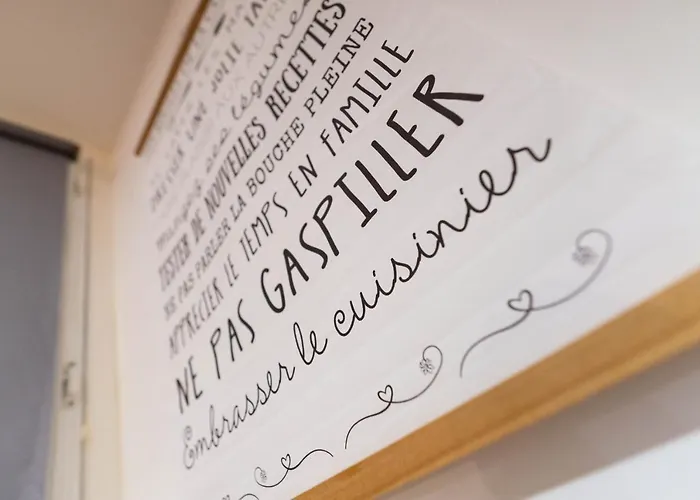 UNE JOLIE TA
AUX AUTRE
ses légumes
TESTER DE NOUVELLES RECETTES
NE PAS PARLER LA BOUCHE PLEINE
APPRÉCIER LE TEMPS EN FAMILLE
NE PAS GASPILLER
Embrasser le cuisinier